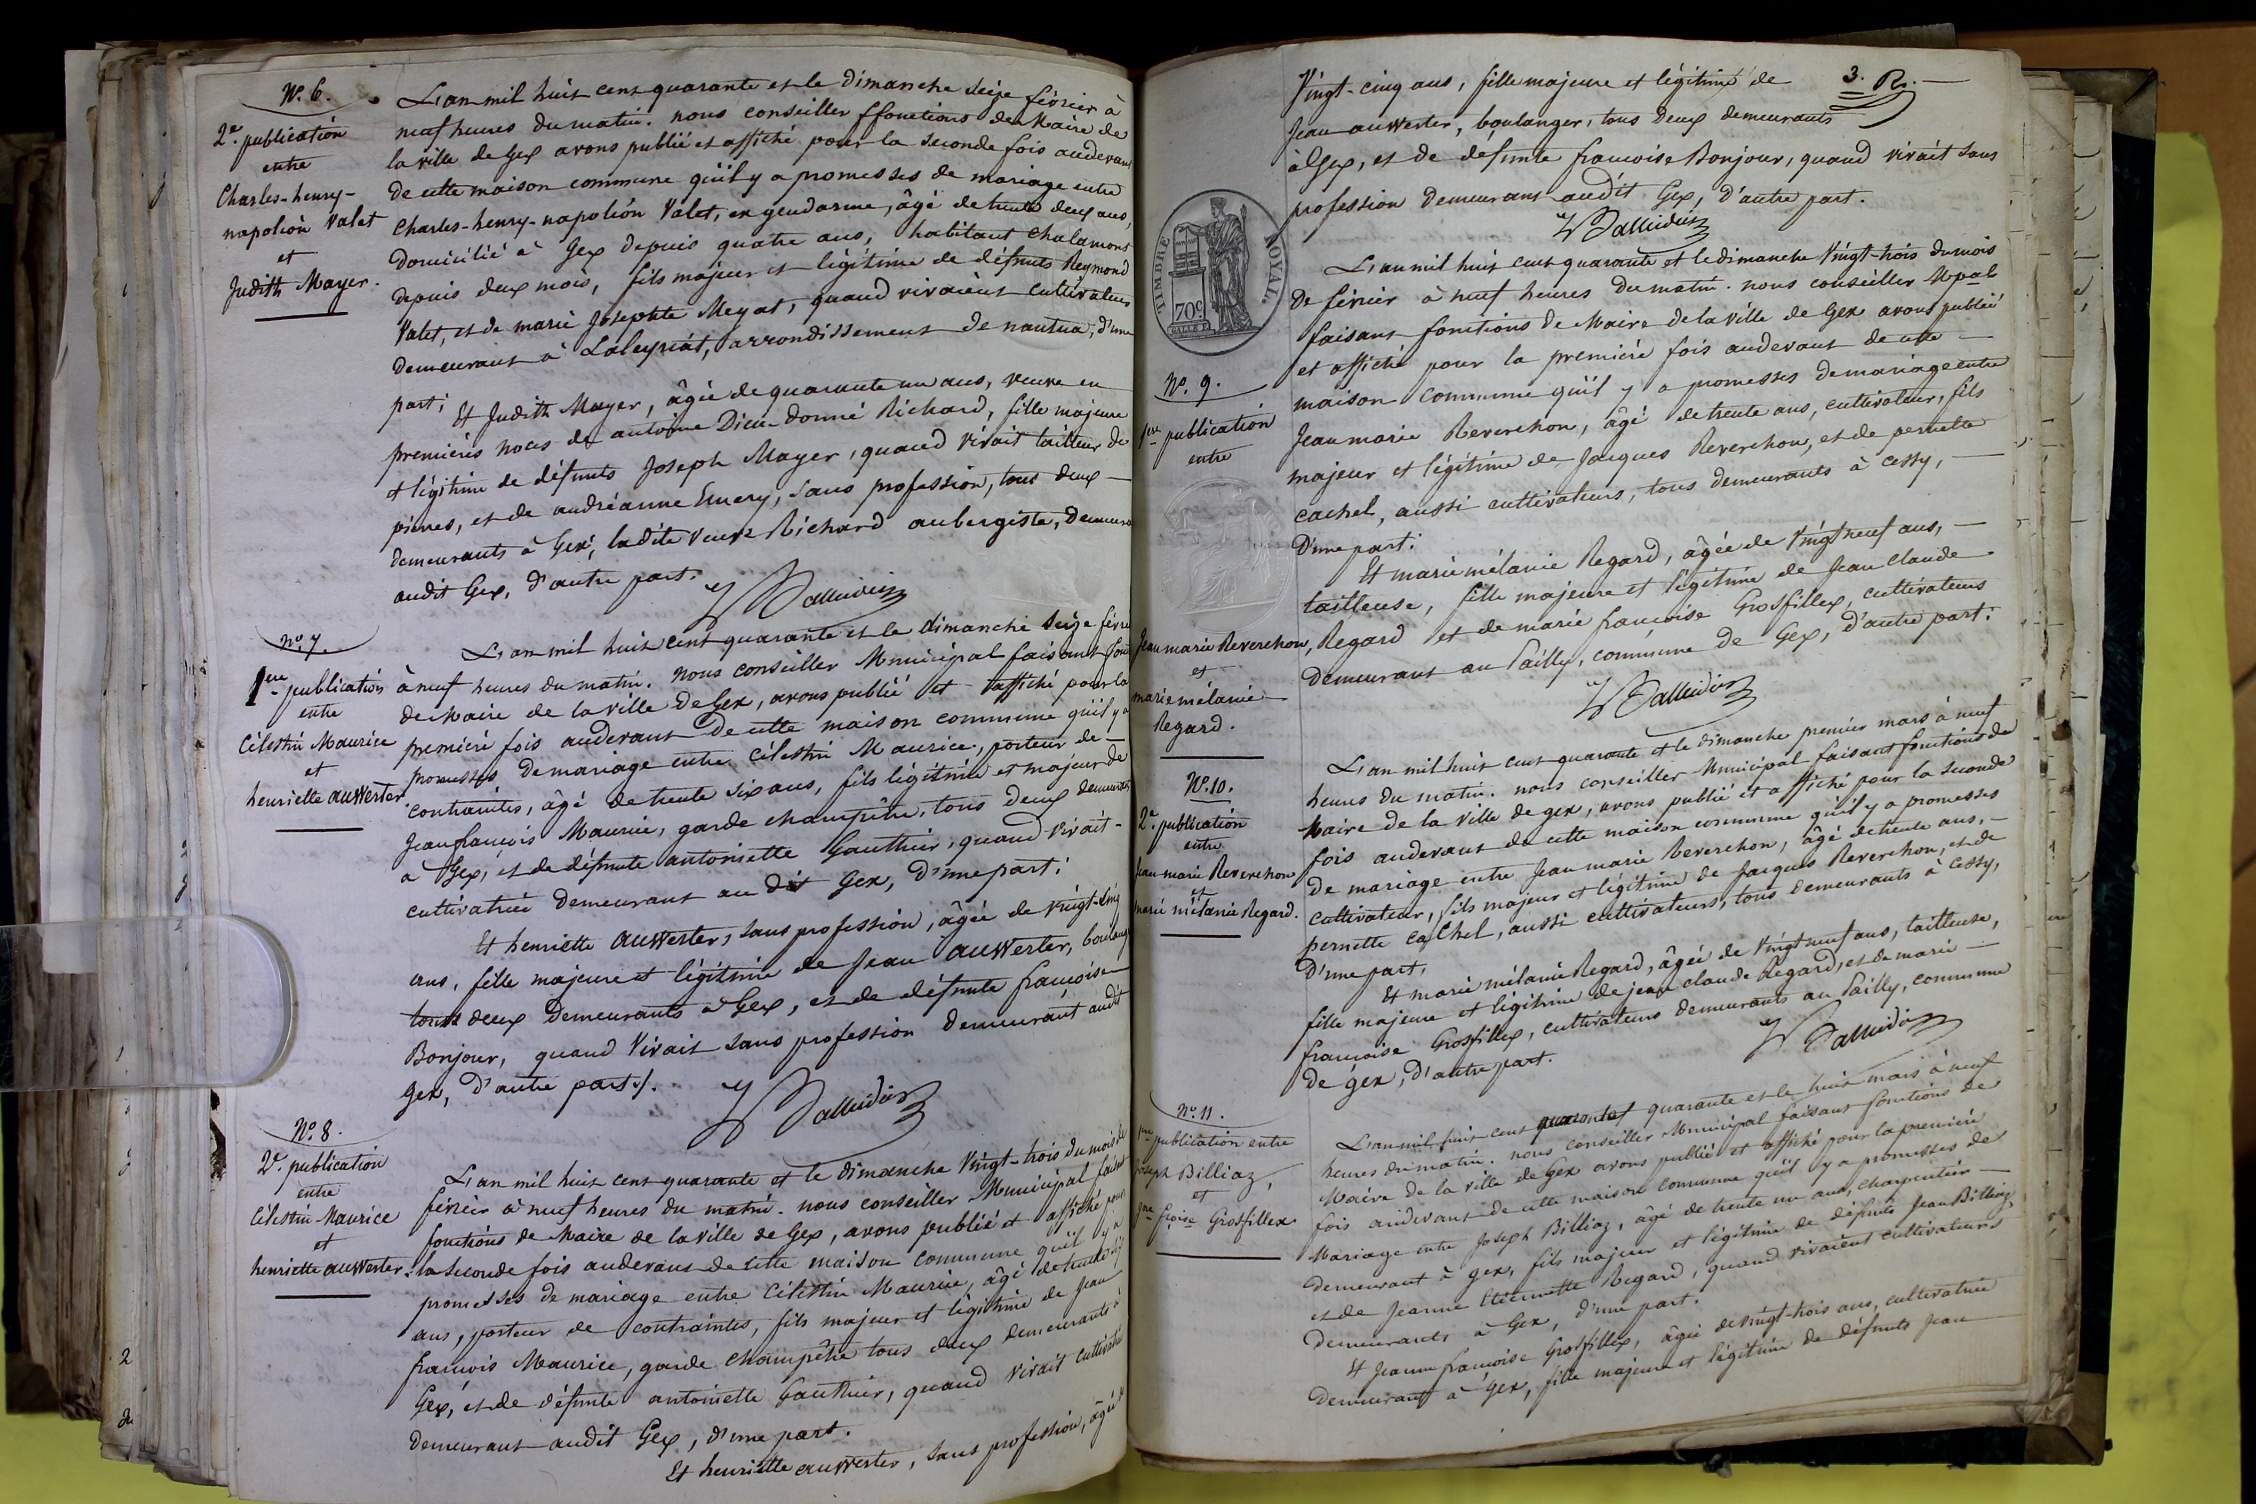 N.o 6.
2.e publication
entre
Charles-henry-
napoléon Valet
et
Judith Mayer.
L'an mil huit cent quarante et le dimanche seize février à
neuf heures du matin. nous conseiller ffonctions de Maire de
la ville de Gex avons publié et affiché pour la seconde fois audevant
de cette maison commune qu'il y a promesses de mariage entre
Charles-henry-napoléon Valet, ex gendarme, âgé de trente deux ans,
domicilié à Gex depuis quatre ans, habitant Chalamont
depuis deux mois, fils majeur et légitime de défunts Reymond
Valet, et de marie Josephte Meyat, quand vivaient cultivateurs
demeurant à Laleyriat, arrondissement de nantua, d'une
part;
Et Judith Mayer, âgée de quarante un ans, veuve en
premières noces de antoine Dieu-donné Richard, fille majeure
et légitime de défunts Joseph Mayer, quand vivait tailleur de
pierres, et de andréanne Emery, sans profession, tous deux
demeurants à Gex, ladite veuve Richard aubergiste, demeura
audit Gex, d'autre part.
N.o 7.
1.ere publication
entre
Célestin Maurice
et
henriette auwerter
L'an mil huit cent quarante et le dimanche seize févri
à neuf heures du matin. nous conseiller Municipal faisant fon
de Maire de la ville de Gex, avons publié et affiché pour la
première fois audevant de cette maison commune qu'il y a
promesses de mariage entre Célestin Maurice, porteur de
contraintes, âgé de trente six ans, fils légitime et majeur de
Jean françois Maurice, garde champêtre, tous deux demeurants
à Gex, et de défunte antoinette Gauthier, quand vivait
cultivatrice demeurant au dit Gex, d'une part;
Et henriette auwerter, sans profession, âgée de vingt-cinq
ans, fille majeure et légitime de Jean auwerter, boulang
tous deux demeurants à Gex, et de défunte françoise
Bonjour, quand vivait sans profession demeurant audit
Gex, d'autre part./.
N.o 8.
2.e publication
entre
Célestin Maurice
et
henriette auwerter.
L'an mil huit cent quarante et le dimanche vingt-trois du mois de
février à neuf heures du matin. nous conseiller Municipal faisant
fonctions de Maire de la ville de Gex, avons publié et affiché pour
la seconde fois audevant de cette maison commune qu'il y a
promesses de mariage entre Célestin Maurice, âgé de trente six
ans, porteur de contraintes, fils majeur et légitime de Jean
françois Maurice, garde champêtre tous deux demeurants à
Gex, et de défunte antoinette Gauthier, quand vivait cultivatrice
demeurant audit Gex, d'une part.
Et henriette auwerter, sans profession, âgée
3.
Vingt-cinq ans, fille majeure et légitime de
Jean auwerter, boulanger, tous deux demeurants
à Gex, et de défunte francoise Bonjour, quand vivait sans
profession demeurant audit Gex, d'autre part.
TIMBRE ROYAL.
70c
N.o 9.
1.ere publication
entre
Jean marie Reverchon,
et
marie mélanie
Regard.
L'an mil huit cent quarante et le dimanche vingt-trois du mois
de février à neuf heures du matin. nous conseiller Mpal
faisant fonctions de Maire de la ville de Gex avons publié
et affiché pour la première fois audevant de cette
maison commune qu'il y a promesses de mariage entre
Jean marie Reverchon, âgé de trente ans, cultivateur, fils
majeur et légitime de Jacques Reverchon, et de pernette
cachel, aussi cultivateurs, tous demeurants à Cessy,
D'une part;
Et marie mélanie Regard, âgée de vingt neuf ans,
tailleuse, fille majeure et légitime de Jean Claude
Regard et de marie françoise Grosfillex, cultivateurs
demeurant au Pailly, commune de Gex, d'autre part.
N.o 10.
2.e publication
entre
Jean marie Reverchon
et
marie mélanie Regard.
L'an mil huit cent quarante et le dimanche premier mars à neuf
heures du matin. nous conseiller Municipal faisant fonctions de
Maire de la ville de gex, avons publié et affiché pour la seconde
fois audevant de cette maison commune qu'il y a promesses
de mariage entre Jean marie Reverchon, âgé de trente ans,
cultivateur, fils majeur et légitime de Jacques Reverchon, et de
pernette cachel, aussi cultivateurs, tous demeurants à Cessy,
D'une part;
Et marie mélanie Regard, âgée de vingt neuf ans, tailleuse,
fille majeure et légitime de jean claude Regard, et de marie
françoise Grosfillex, cultivateurs demeurants au Pailly, commune
de gex, d'autre part.
N.o 11.
1.ere publication entre
Joseph Billiaz,
et
Jne fçoise Grosfillex
L'an mil huit cent quarante quarante et le huit mars à neuf
heures du matin. nous conseiller Municipal faisant fonctions de
Maire de la ville de Gex avons publié et affiché pour la première
fois audevant de cette maison commune qu'il y a promesses de
Mariage entre Joseph Billiaz, âgé de trente un ans, charpentier
demeurant à gex, fils majeur et légitime de défunts Jean Billiaz
et de Jeanne Etiennette Regard, quand vivaient cultivateurs
demeurants à Gex, d'une part.
Et Jeanne françoise Grosfillex, âgée de vingt-trois ans, cultivatrice
demeurant à Gex, fille majeure et légitime de défunts Jean